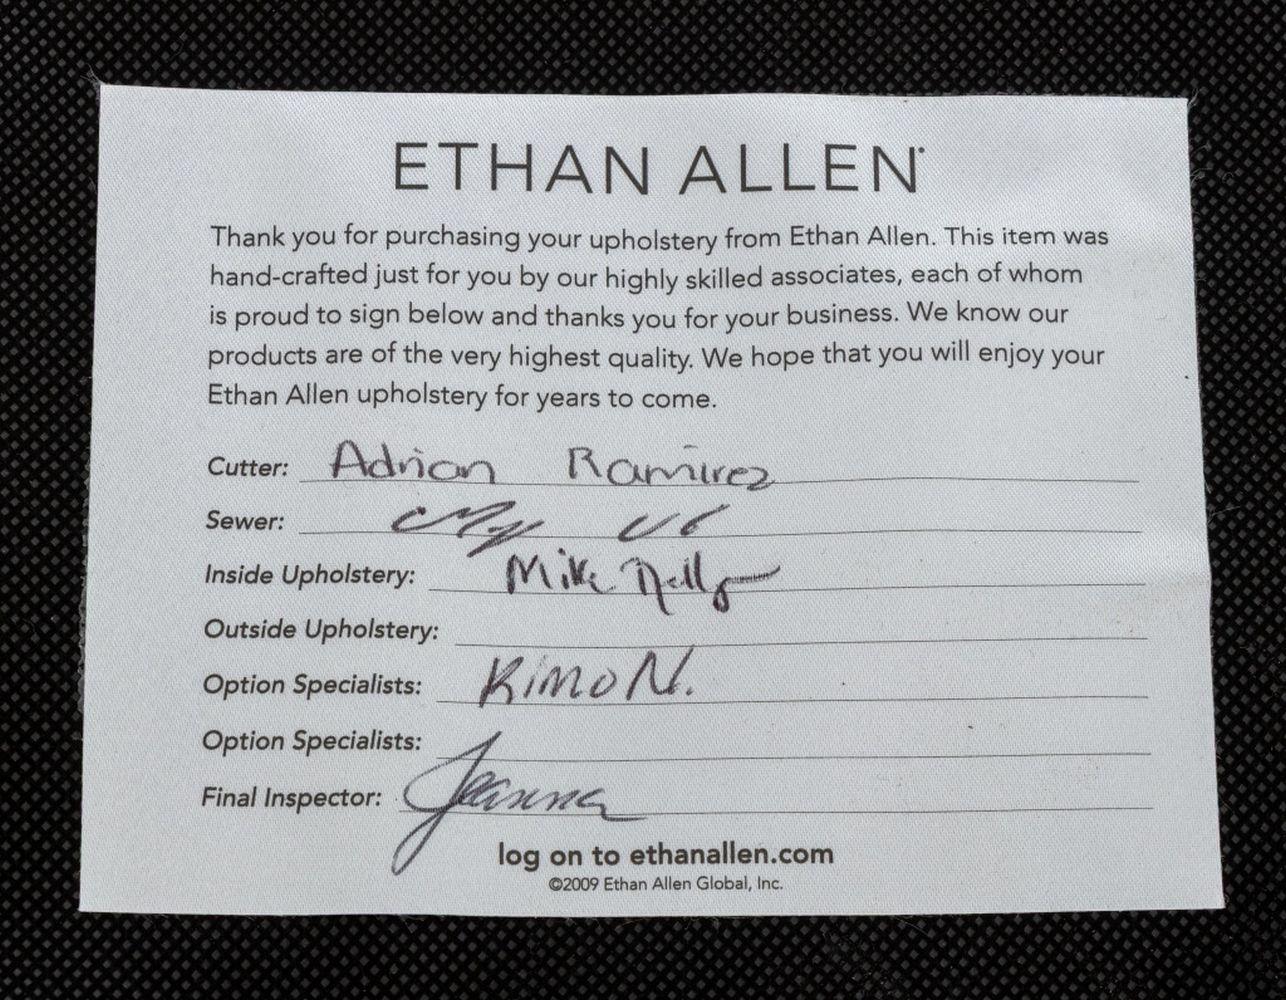 ETHAN ALLEN
Thank you for purchasing your upholstery from Ethan Allen. This item was
hand-crafted just for you by our highly skilled associates, each of whom
is proud to sign below and thanks you for your business. We know our
products are of the very highest quality. We hope that you will enjoy your
Ethan Allen upholstery for years to come.
Cutter: Adrian Ramirez
Sewer:
Inside Upholstery: Mike
Outside Upholstery:
Option Specialists: Kimo N.
Option Specialists:
Final Inspector: Jeanna
log on to ethanallen.com
©2009 Ethan Allen Global, Inc.